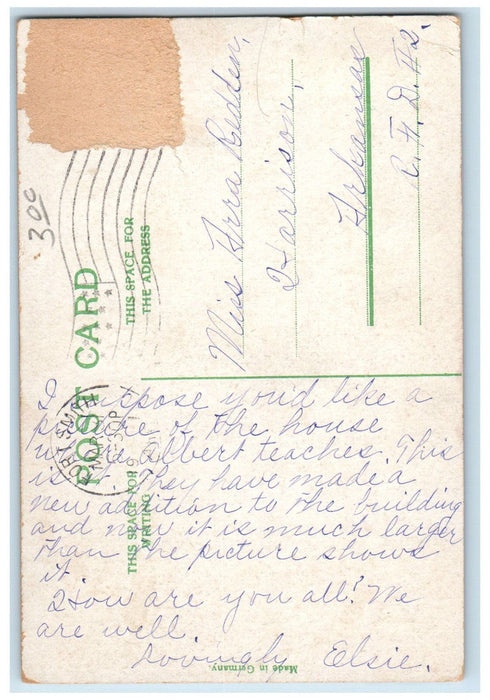 POST CARD
THIS SPACE FOR
WRITING
THIS SPACE FOR
THE ADDRESS
3.00
Miss Arra Redden,
Harrison,
Arkansas
R.F.D. #2.
I suppose you'd like a
picture of the house
where Albert teaches. This
is it. They have made a
new addition to the building
and now it is much larger
than the picture shows
it.
How are you all? We
are well.
Lovingly Elsie.
Made in Germany.